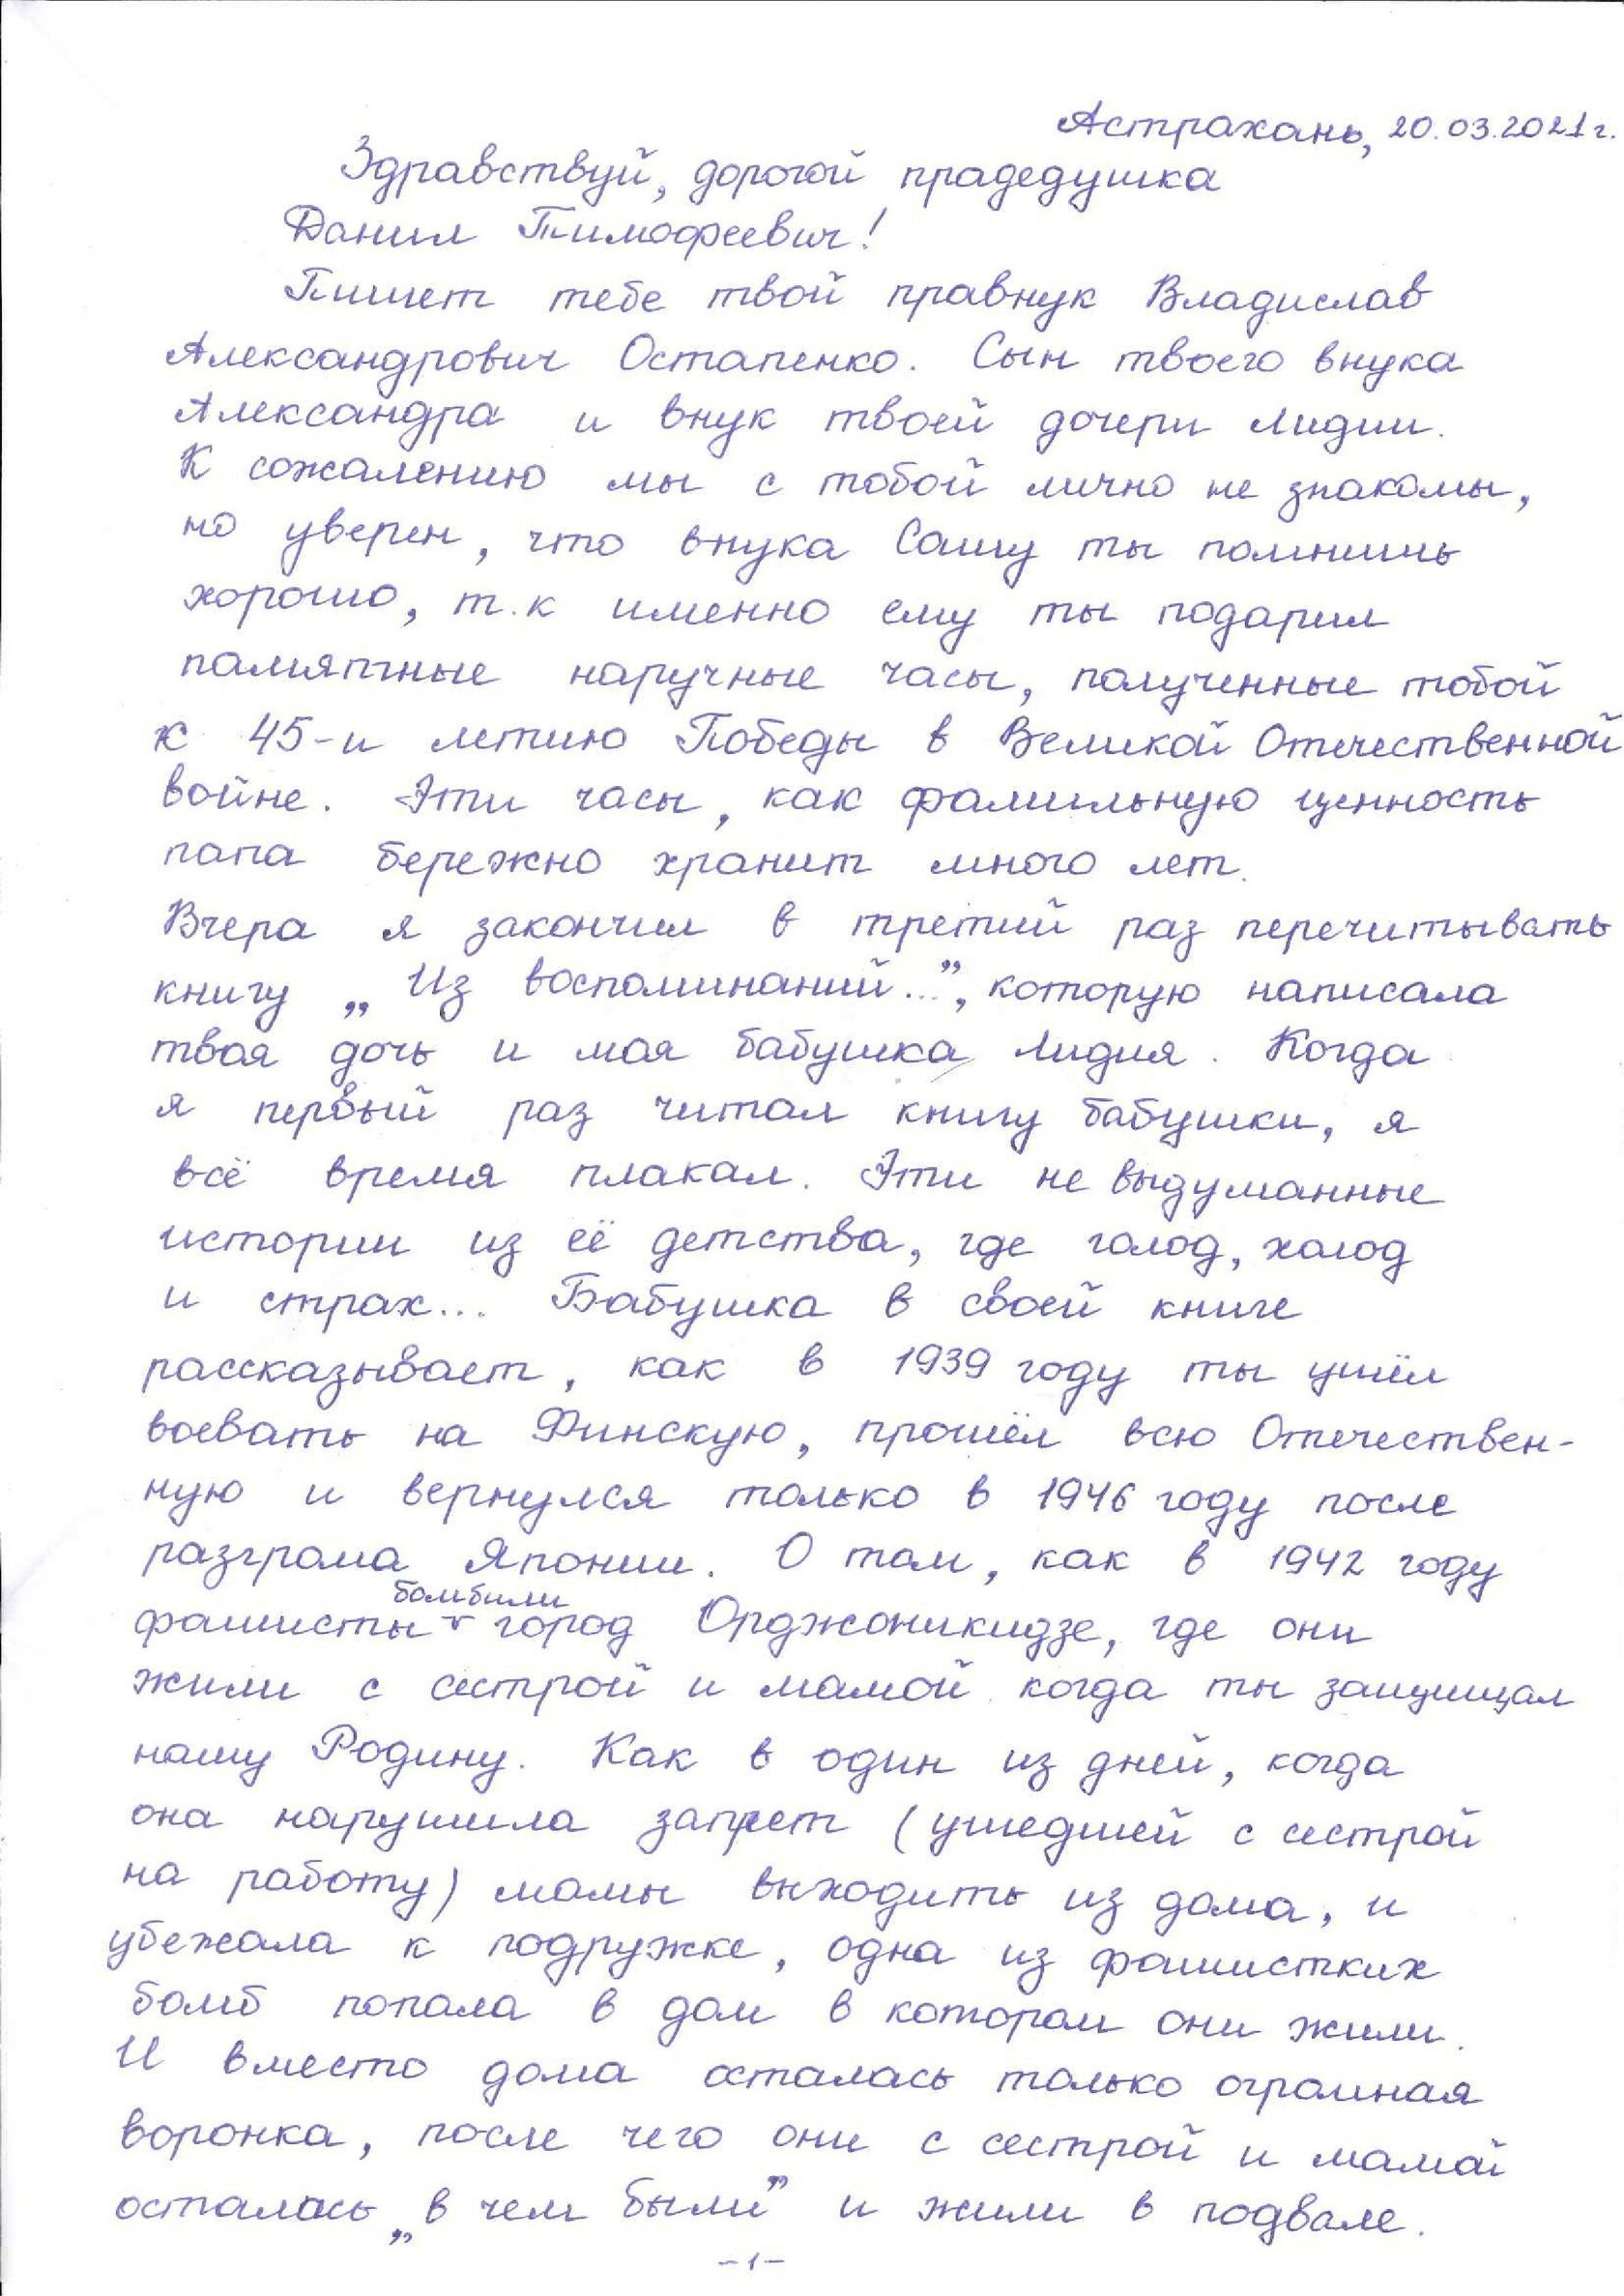 Астрахань, 20.03.2021г.
Здравствуй, дорогой прадедушка
Данил Тимофеевич!
Пишет тебе твой правнук Владислав
Александрович Остапенко. Сын твоего внука
Александра и внук твоей дочери Лидии.
К сожалению мы с тобой лично не знакомы,
но уверен, что внука Сашу ты помнишь
хорошо, т.к именно ему ты подарил
памятные наручные часы, полученные тобой
к 45-и летию Победы в Великой Отечественной
войне. Эти часы, как фамильную ценность
папа бережно хранит много лет.
Вчера я закончил в третий раз перечитывать
книгу „Из воспоминаний...”, которую написала
твоя дочь и моя бабушка Лидия. Когда
я первый раз читал книгу бабушки, я
всё время плакал. Эти не выдуманные
истории из её детства, где голод, холод
и страх... Бабушка в своей книге
рассказывает, как в 1939 году ты ушёл
воевать на Финскую, прошёл всю Отечествен-
ную и вернулся только в 1946 году после
разгрома Японии. О том, как в 1942 году
бомбили
фашисты город Орджоникидзе, где они
жили с сестрой и мамой когда ты защищал
нашу Родину. Как в один из дней, когда
она нарушила запрет (ушедшей с сестрой
на работу) мамы выходить из дома, и
убежала к подружке, одна из фашистких
бомб попала в дом в котором они жили.
И вместо дома осталась только огромная
воронка, после чего они с сестрой и мамой
осталась „в чем были” и жили в подвале.
-1-